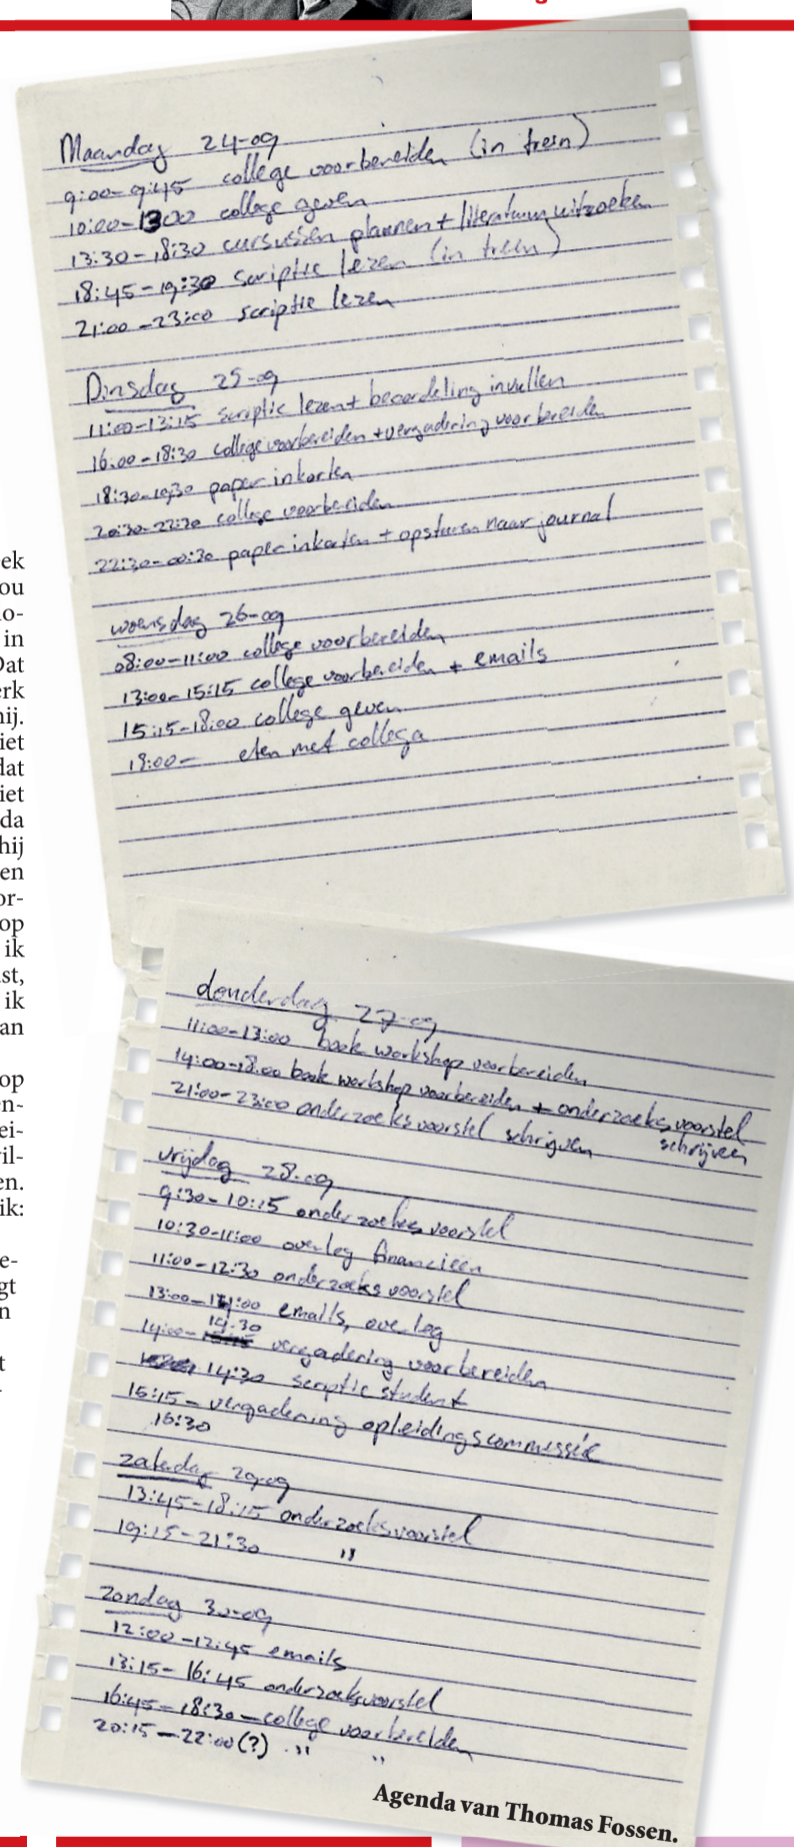 Maandag 24-09
9:00-9:45 college voorbereiden (in trein)
10:00-1300 college geven
13:30-18:30 cursussen plannen + literatuur uitzoeken
18:45-19:30 scriptie lezen (in trein)
21:00-23:00 scriptie lezen
Dinsdag 25-09
11:00-13:15 scriptie lezen + beoordeling invullen
16:00-18:30 college voorbereiden + vergadering voorbereiden
18:30-19:30 paper inkorten
20:30-22:30 college voorbereiden
22:30-00:30 paper inkorten + opsturen naar journal
woensdag 26-09
08:00-11:00 college voorbereiden
13:00-15:15 college voorbereiden + emails
15:15-18:00 college geven
18:00- eten met collega
ek
ou
lo-
in
Dat
erk
hij.
iet
lat
iet
da
hij
en
or-
op
ik
st,
ik
an
op
en-
ei-
il-
en.
ik:
e-
gt
n
t
donderdag 27-09
11:00-13:00 book workshop voorbereiden
14:00-18:00 book workshop voorbereiden + onderzoeksvoorstel
schrijven
21:00-23:00 onderzoeksvoorstel schrijven
vrijdag 28-09
9:30-10:15 onderzoeksvoorstel
10:30-11:00 overleg financieen
11:00-12:30 onderzoeksvoorstel
13:00-14:00 emails, overleg
14:00-14:30 vergadering voorbereiden
14:30 scriptie student
15:15- vergadering opleidingscommissie
16:30
zaterdag 29-09
13:45-18:15 onderzoeksvoorstel
19:15-21:30 "
zondag 30-09
12:00-12:45 emails
13:15-16:45 onderzoeksvoorstel
16:45-18:30-college voorbereiden
20:15-22:00(?) " "
Agenda van Thomas Fossen.